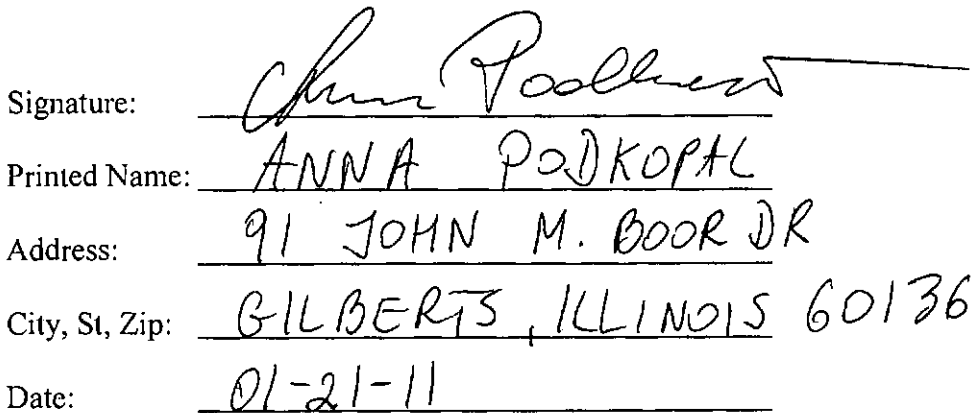 Signature:
Printed Name: ANNA PODKOPAL
Address: 91 JOHN M. BOOR DR
City, St, Zip: GILBERTS, ILLINOIS 60136
Date: 01-21-11